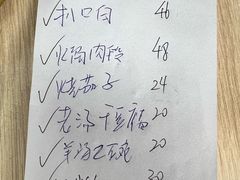 ✓扒口白 46
✓火锅肉段 48
✓烧茄子 24
✓老汤干豆腐 20
✓羊汤 20
30